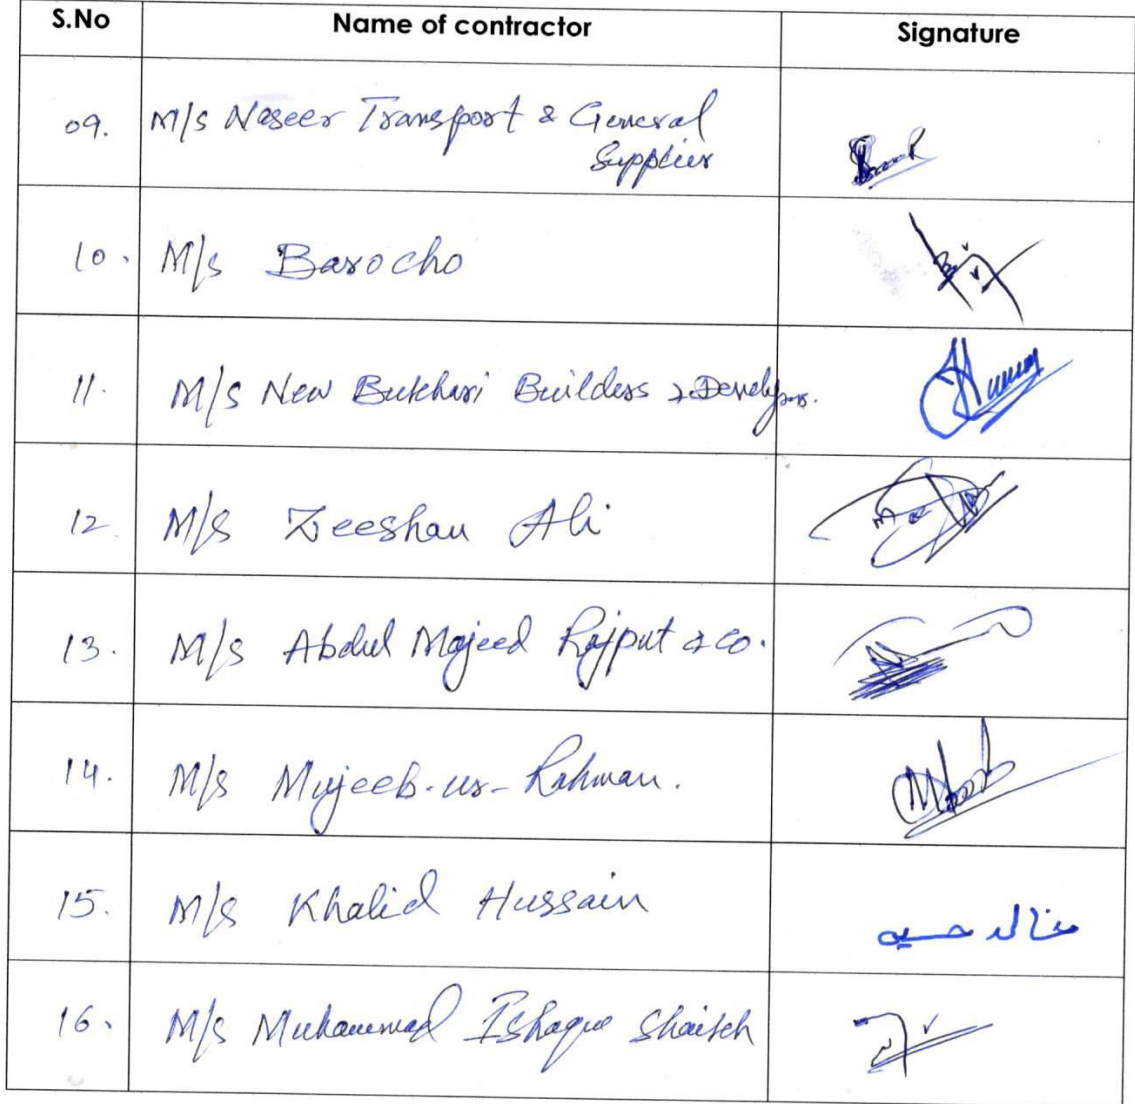 S.No Name of contractor Signature
09. M/s Naseer Transport & General
Supplier
10. M/s Barocho
11. M/s New Bukhari Builders & Developers.
12. M/s Zeeshan Ali
13. M/s Abdul Majeed Rajput & co.
14. M/s Mujeeb-ur-Rahman.
15. M/s Khalid Hussain خالد حسين
16. M/s Muhammad Ishaque Shaikh